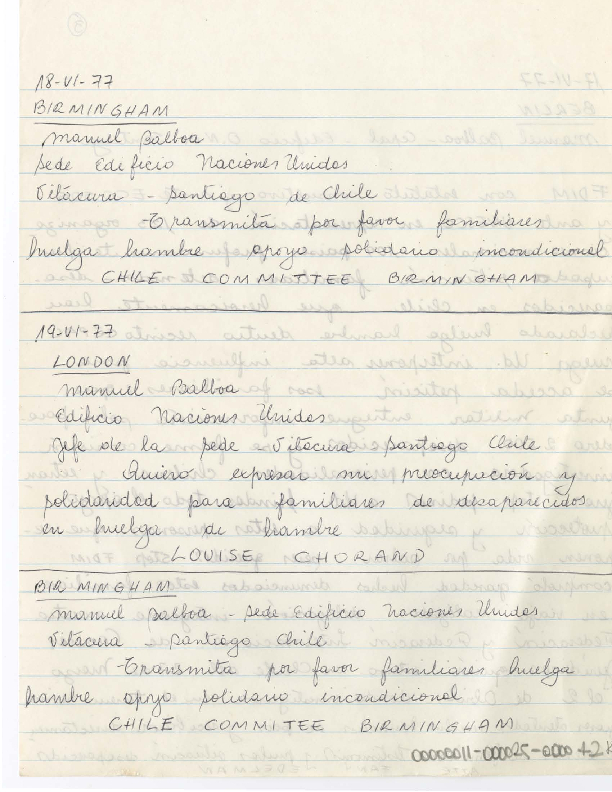 18-VI-77
BIRMINGHAM
Manuel Balboa
Sede Edificio Naciones Unidas
Vitácura - Santiago de Chile
-Transmita por favor familiares
huelga hambre apoyo solidario incondicional
CHILE COMMITTEE BIRMINGHAM
19-VI-77
LONDON
Manuel Balboa
Edificio Naciones Unidas
Jefe de la Sede - Vitácura Santiago Chile
Quiero expresar mi preocupación y
solidaridad para familiares de desaparecidos
en huelga de hambre
LOUISE CHORAND
BIRMINGHAM
Manuel Balboa - Sede Edificio Naciones Unidas
Vitácura Santiago Chile
-Transmita por favor familiares huelga
hambre apoyo solidario incondicional
CHILE COMMITEE BIRMINGHAM